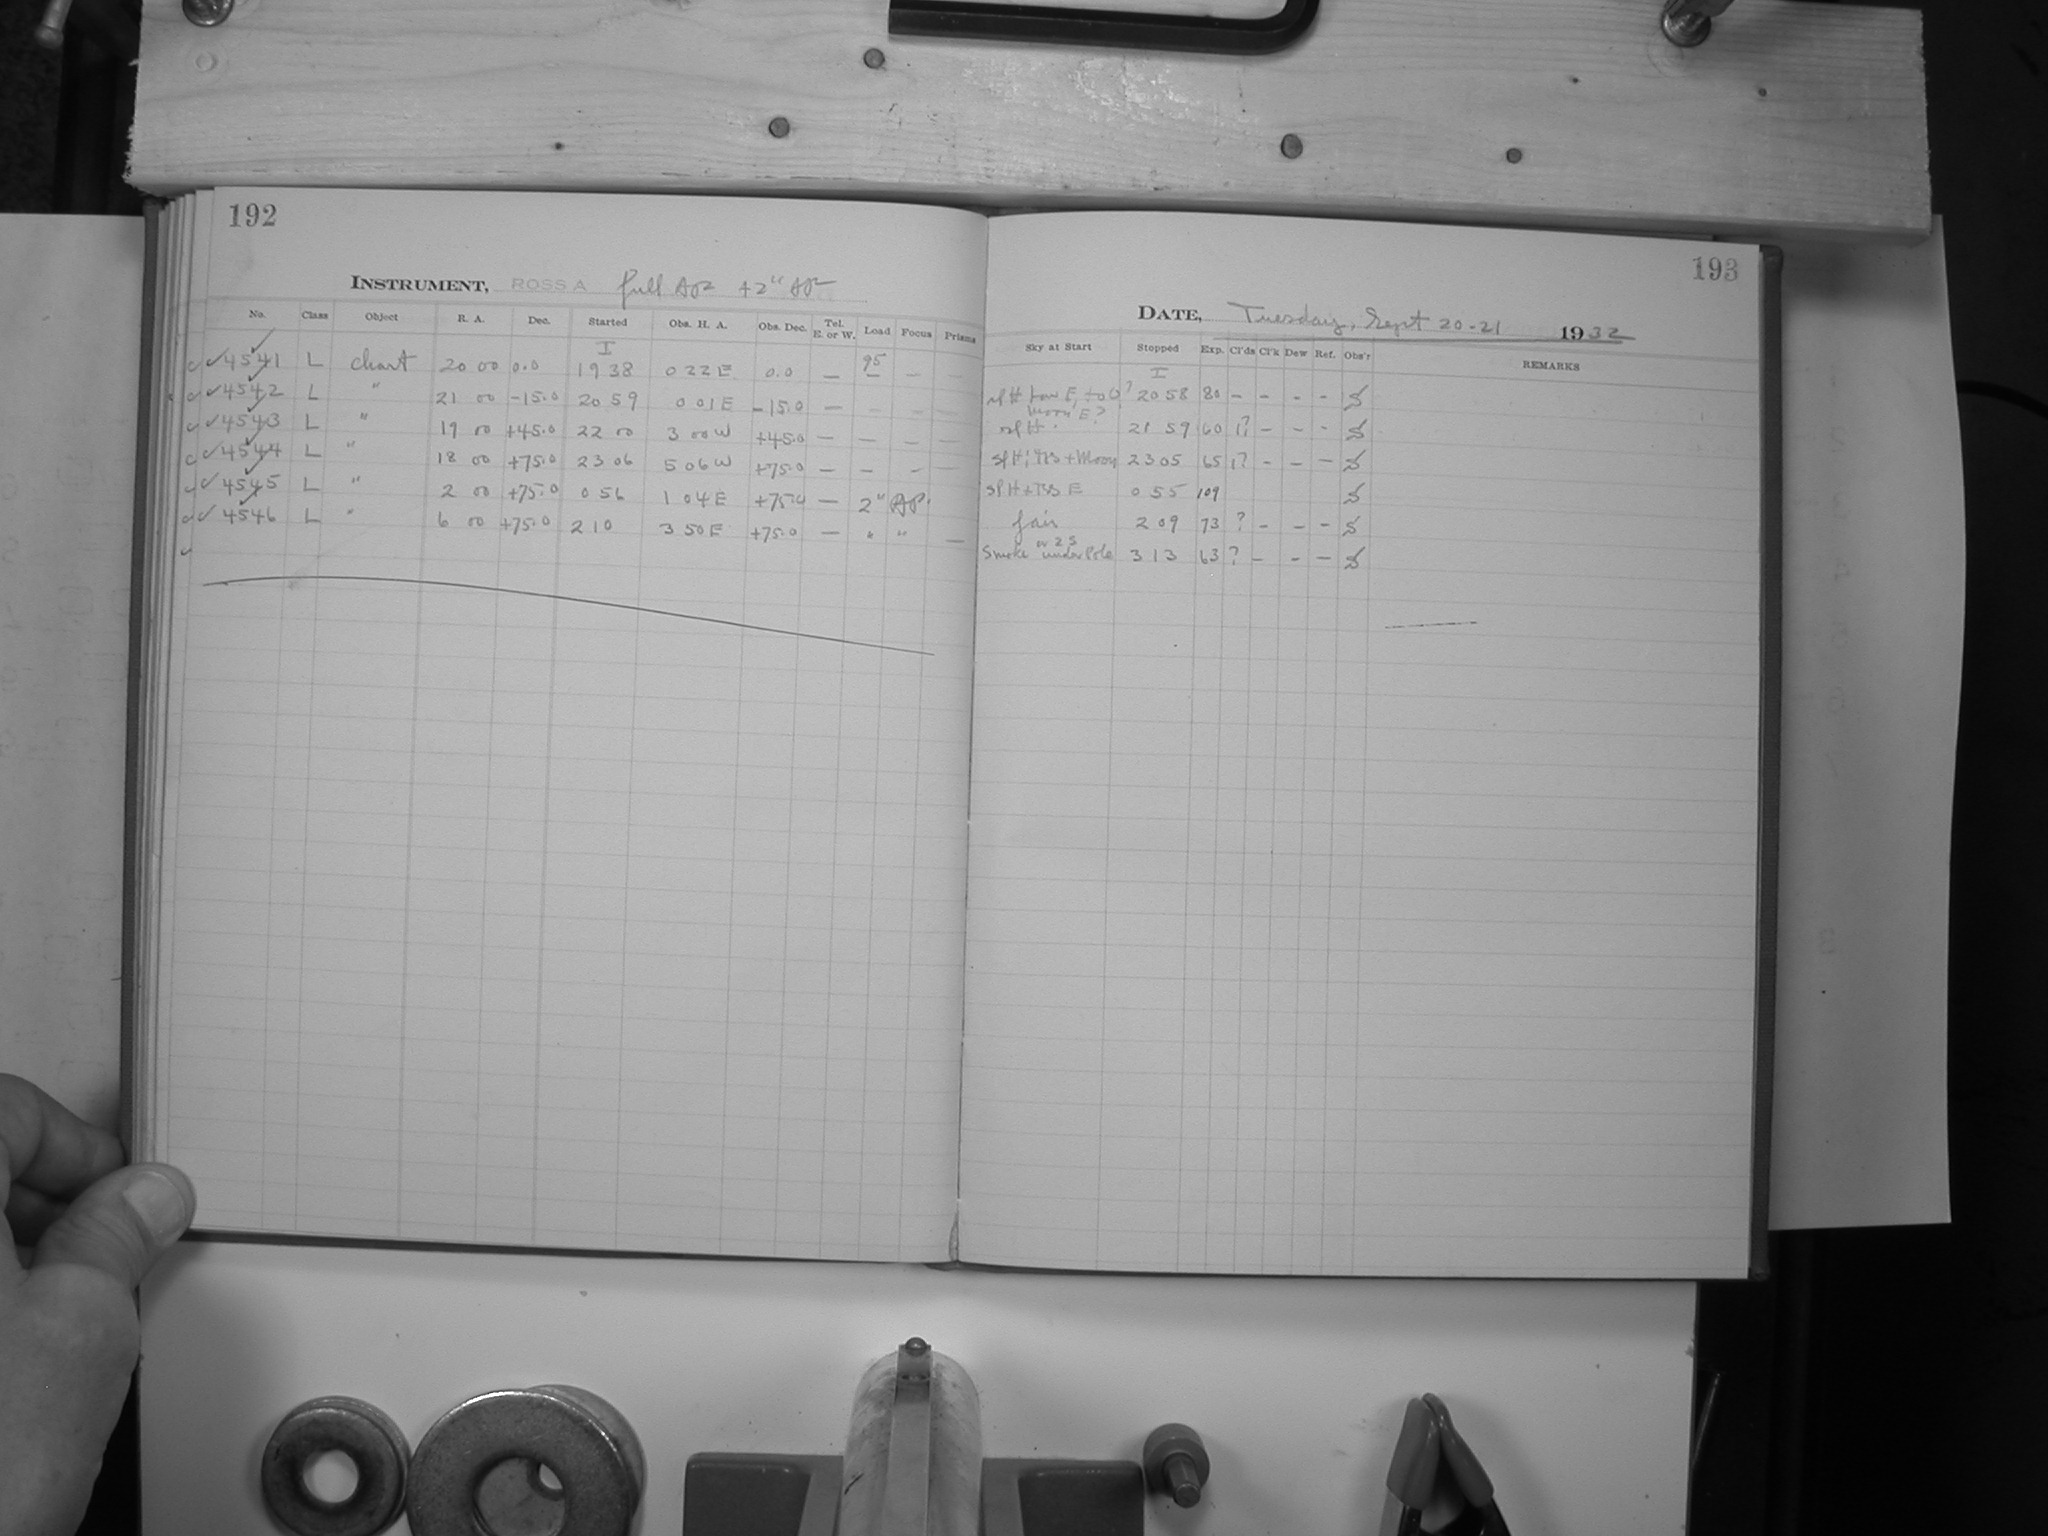 192
INSTRUMENT, ROSS A full Ap +2" Ap
No. Class Object R. A. Dec. Started Obs. H. A. Obs. Dec. Tel. E. or W. Load Focus Prisms
I 95
4541 L chart 20 00 0.0 19 38 0 22 E 0.0 — — — —
4542 L " 21 00 -15.0 20 59 0 01 E -15.0 — — — —
4543 L " 19 00 +45.0 22 00 3 00 W +45.0 — — — —
4544 L " 18 00 +75.0 23 06 5 06 W +75.0 — — - —
4545 L " 2 00 +75.0 0 56 1 04 E +75.0 — 2" Ap.
4546 L " 6 00 +75.0 2 10 3 50 E +75.0 — " " —
193
DATE, Tuesday, Sept 20-21 1932
Sky at Start Stopped Exp. Cl'ds Cl'k Dew Ref. Obs'r REMARKS
I
E, 20 58 80 - - - -
Moon E?
21 59 60 1? - - -
+ Moon 23 05 65 1? - - -
E 0 55 109
fair 2 09 73 ? - - -
or 2 S
Smoke under Pole 3 13 63 ? - - -